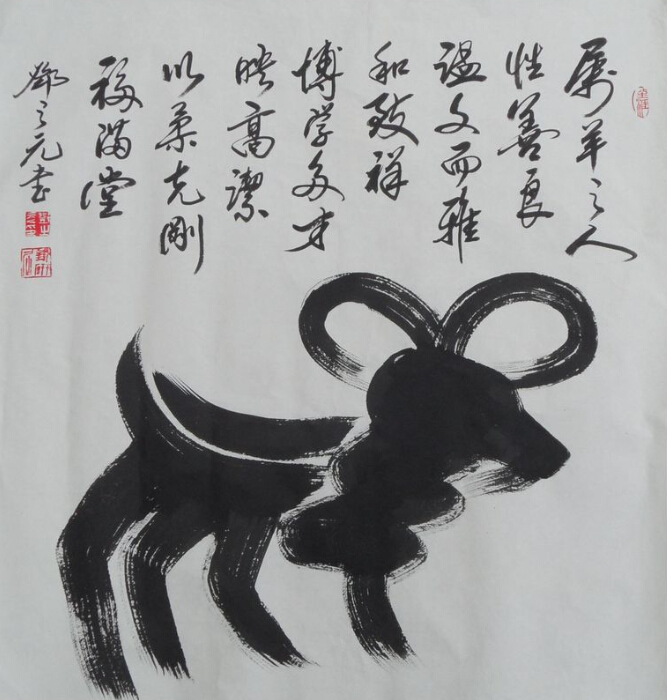 属羊之人
性善良
温文而雅
和致祥
博学多才
映高潔
以柔克剛
福滿堂
鄧之元書